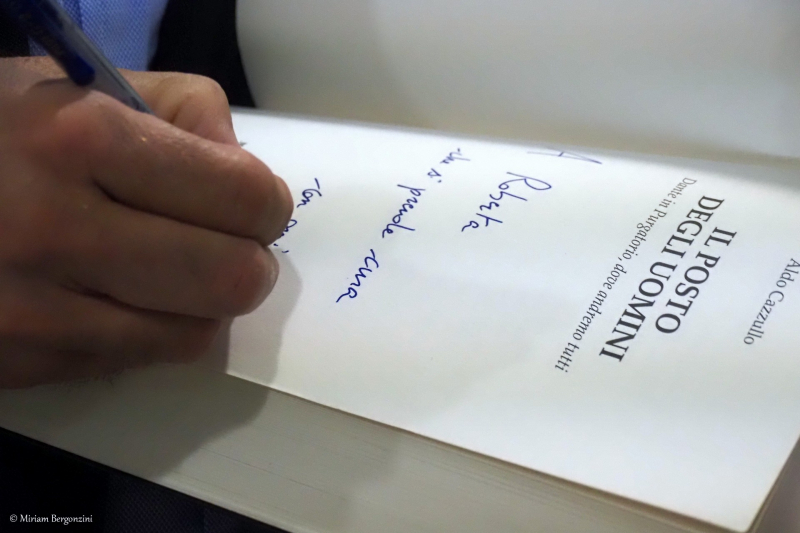 Aldo Cazzullo
IL POSTO
DEGLI UOMINI
Dante in Purgatorio, dove andremo tutti
A Roberta
che si prende cura
con
© Miriam Bergonzini